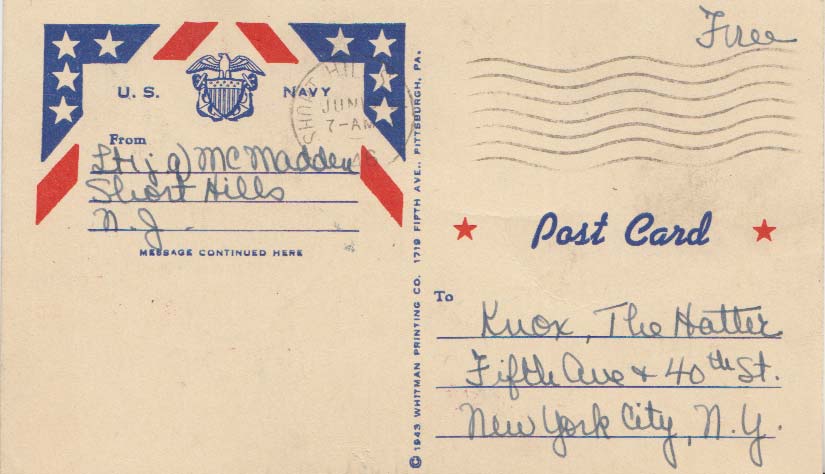 Free
U. S. NAVY
SHORT HILLS
JUN
7-AM
From
Lt(jg) McMadden
Short Hills
N.J.
MESSAGE CONTINUED HERE
© 1943 WHITMAN PRINTING CO. 1719 FIFTH AVE., PITTSBURGH, PA.
Post Card
To
Knox, The Hatter
Fifth Ave & 40th St.
New York City, N.Y.